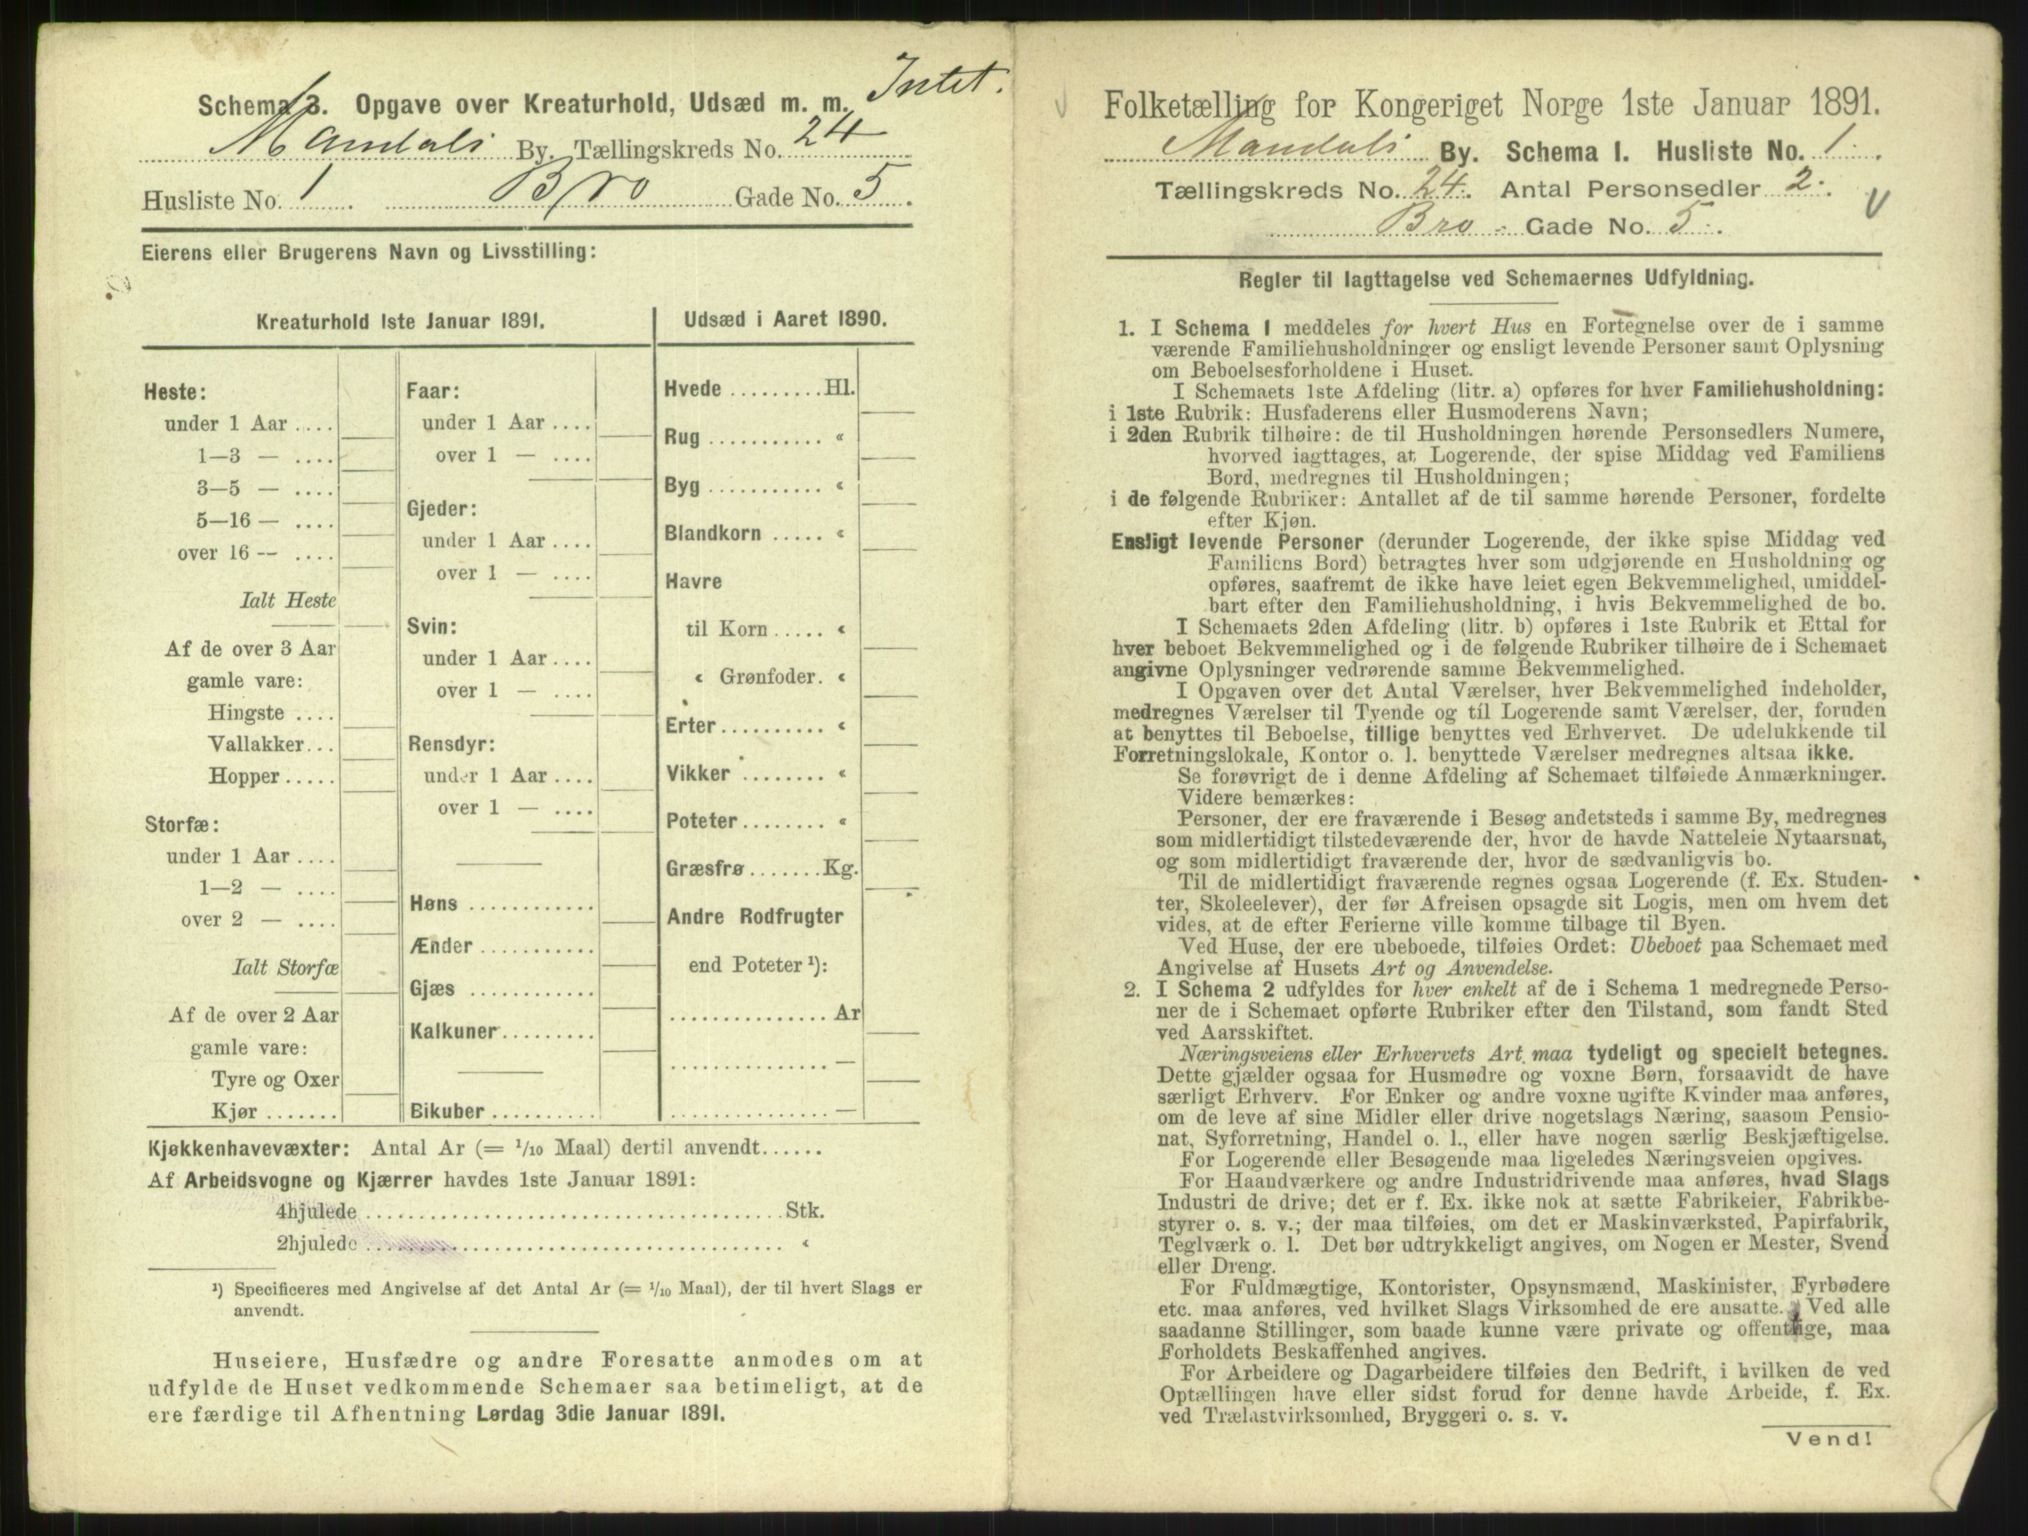 Intet.
Schema 3. Opgave over Kreaturhold, Udsæd m. m.
Mandals By. Tællingskreds No. 24
Husliste No. 1. Bro Gade No. 5.
Eierens eller Brugerens Navn og Livsstilling:
Kreaturhold 1ste Januar 1891.
Heste:
under 1 Aar ....
1—3 — ....
3—5 — ....
5—16 — ....
over 16 — ....
Ialt Heste
Af de over 3 Aar
gamle vare:
Hingste ....
Vallakker...
Hopper .....
Storfæ:
under 1 Aar ....
1—2 — ....
over 2 — ....
Ialt Storfæ
Af de over 2 Aar
gamle vare:
Tyre og Oxer
Kjør .......
Faar:
under 1 Aar ....
over 1 — ....
Gjeder:
under 1 Aar ....
over 1 — ....
Svin:
under 1 Aar ....
over 1 — ....
Rensdyr:
under 1 Aar ....
over 1 — ....
Høns ............
Ænder ...........
Gjæs ............
Kalkuner.........
Bikuber ..........
Udsæd i Aaret 1890.
Hvede .........Hl.
Rug ........... «
Byg ........... «
Blandkorn ..... «
Havre
til Korn ..... «
« Grønfoder. «
Erter.......... «
Vikker ........ «
Poteter........ «
Græsfrø .......Kg.
Andre Rodfrugter
end Poteter ¹):
............... Ar
............... —
............... —
Kjøkkenhavevæxter: Antal Ar (= 1/10 Maal) dertil anvendt......
Af Arbeidsvogne og Kjærrer havdes 1ste Januar 1891:
4hjulede ........................................Stk.
2hjulede ........................................ «
¹) Specificeres med Angivelse af det Antal Ar (= 1/10 Maal), der til hvert Slags er
anvendt.
Huseiere, Husfædre og andre Foresatte anmodes om at
udfylde de Huset vedkommende Schemaer saa betimeligt, at de
ere færdige til Afhentning Lørdag 3die Januar 1891.
Folketælling for Kongeriget Norge 1ste Januar 1891.
Mandals By. Schema I. Husliste No. 1.
Tællingskreds No. 24. Antal Personsedler 2.
Bro - Gade No. 5.
Regler til Iagttagelse ved Schemaernes Udfyldning.
1. I Schema 1 meddeles for hvert Hus en Fortegnelse over de i samme
værende Familiehusholdninger og ensligt levende Personer samt Oplysning
om Beboelsesforholdene i Huset.
I Schemaets 1ste Afdeling (litr. a) opføres for hver Familiehusholdning:
i 1ste Rubrik: Husfaderens eller Husmoderens Navn;
i 2den Rubrik tilhøire: de til Husholdningen hørende Personsedlers Numere,
hvorved iagttages, at Logerende, der spise Middag ved Familiens
Bord, medregnes til Husholdningen;
i de følgende Rubriker: Antallet af de til samme hørende Personer, fordelte
efter Kjøn.
Ensligt levende Personer (derunder Logerende, der ikke spise Middag ved
Familiens Bord) betragtes hver som udgjørende en Husholdning og
opføres, saafremt de ikke have leiet egen Bekvemmelighed, umiddel-
bart efter den Familiehusholdning, i hvis Bekvemmelighed de bo.
I Schemaets 2den Afdeling (litr. b) opføres i 1ste Rubrik et Ettal for
hver beboet Bekvemmelighed og i de følgende Rubriker tilhøire de i Schemaet
angivne Oplysninger vedrørende samme Bekvemmelighed.
I Opgaven over det Antal Værelser, hver Bekvemmelighed indeholder,
medregnes Værelser til Tyende og til Logerende samt Værelser, der, foruden
at benyttes til Beboelse, tillige benyttes ved Erhvervet. De udelukkende til
Forretningslokale, Kontor o. l. benyttede Værelser medregnes altsaa ikke.
Se forøvrigt de i denne Afdeling af Schemaet tilføiede Anmærkninger.
Videre bemærkes:
Personer, der ere fraværende i Besøg andetsteds i samme By, medregnes
som midlertidigt tilstedeværende der, hvor de havde Natteleie Nytaarsnat,
og som midlertidigt fraværende der, hvor de sædvanligvis bo.
Til de midlertidigt fraværende regnes ogsaa Logerende (f. Ex. Studen-
ter, Skoleelever), der før Afreisen opsagde sit Logis, men om hvem det
vides, at de efter Ferierne ville komme tilbage til Byen.
Ved Huse, der ere ubeboede, tilføies Ordet: Ubeboet paa Schemaet med
Angivelse af Husets Art og Anvendelse.
2. I Schema 2 udfyldes for hver enkelt af de i Schema 1 medregnede Perso-
ner de i Schemaet opførte Rubriker efter den Tilstand, som fandt Sted
ved Aarsskiftet.
Næringsveiens eller Erhvervets Art maa tydeligt og specielt betegnes.
Dette gjælder ogsaa for Husmødre og voxne Børn, forsaavidt de have
særligt Erhverv. For Enker og andre voxne ugifte Kvinder maa anføres,
om de leve af sine Midler eller drive nogetslags Næring, saasom Pensio-
nat, Syforretning, Handel o. l., eller have nogen særlig Beskjæftigelse.
For Logerende eller Besøgende maa ligeledes Næringsveien opgives.
For Haandværkere og andre Industridrivende maa anføres, hvad Slags
Industri de drive; det er f. Ex. ikke nok at sætte Fabrikeier, Fabrikbe-
styrer o. s. v.; der maa tilføies, om det er Maskinværksted, Papirfabrik,
Teglværk o. l. Det bør udtrykkeligt angives, om Nogen er Mester, Svend
eller Dreng.
For Fuldmægtige, Kontorister, Opsynsmænd, Maskinister, Fyrbødere
etc. maa anføres, ved hvilket Slags Virksomhed de ere ansatte. Ved alle
saadanne Stillinger, som baade kunne være private og offentlige, maa
Forholdets Beskaffenhed angives.
For Arbeidere og Dagarbeidere tilføies den Bedrift, i hvilken de ved
Optællingen have eller sidst forud for denne havde Arbeide, f. Ex.
ved Trælastvirksomhed, Bryggeri o. s. v.
Vend!